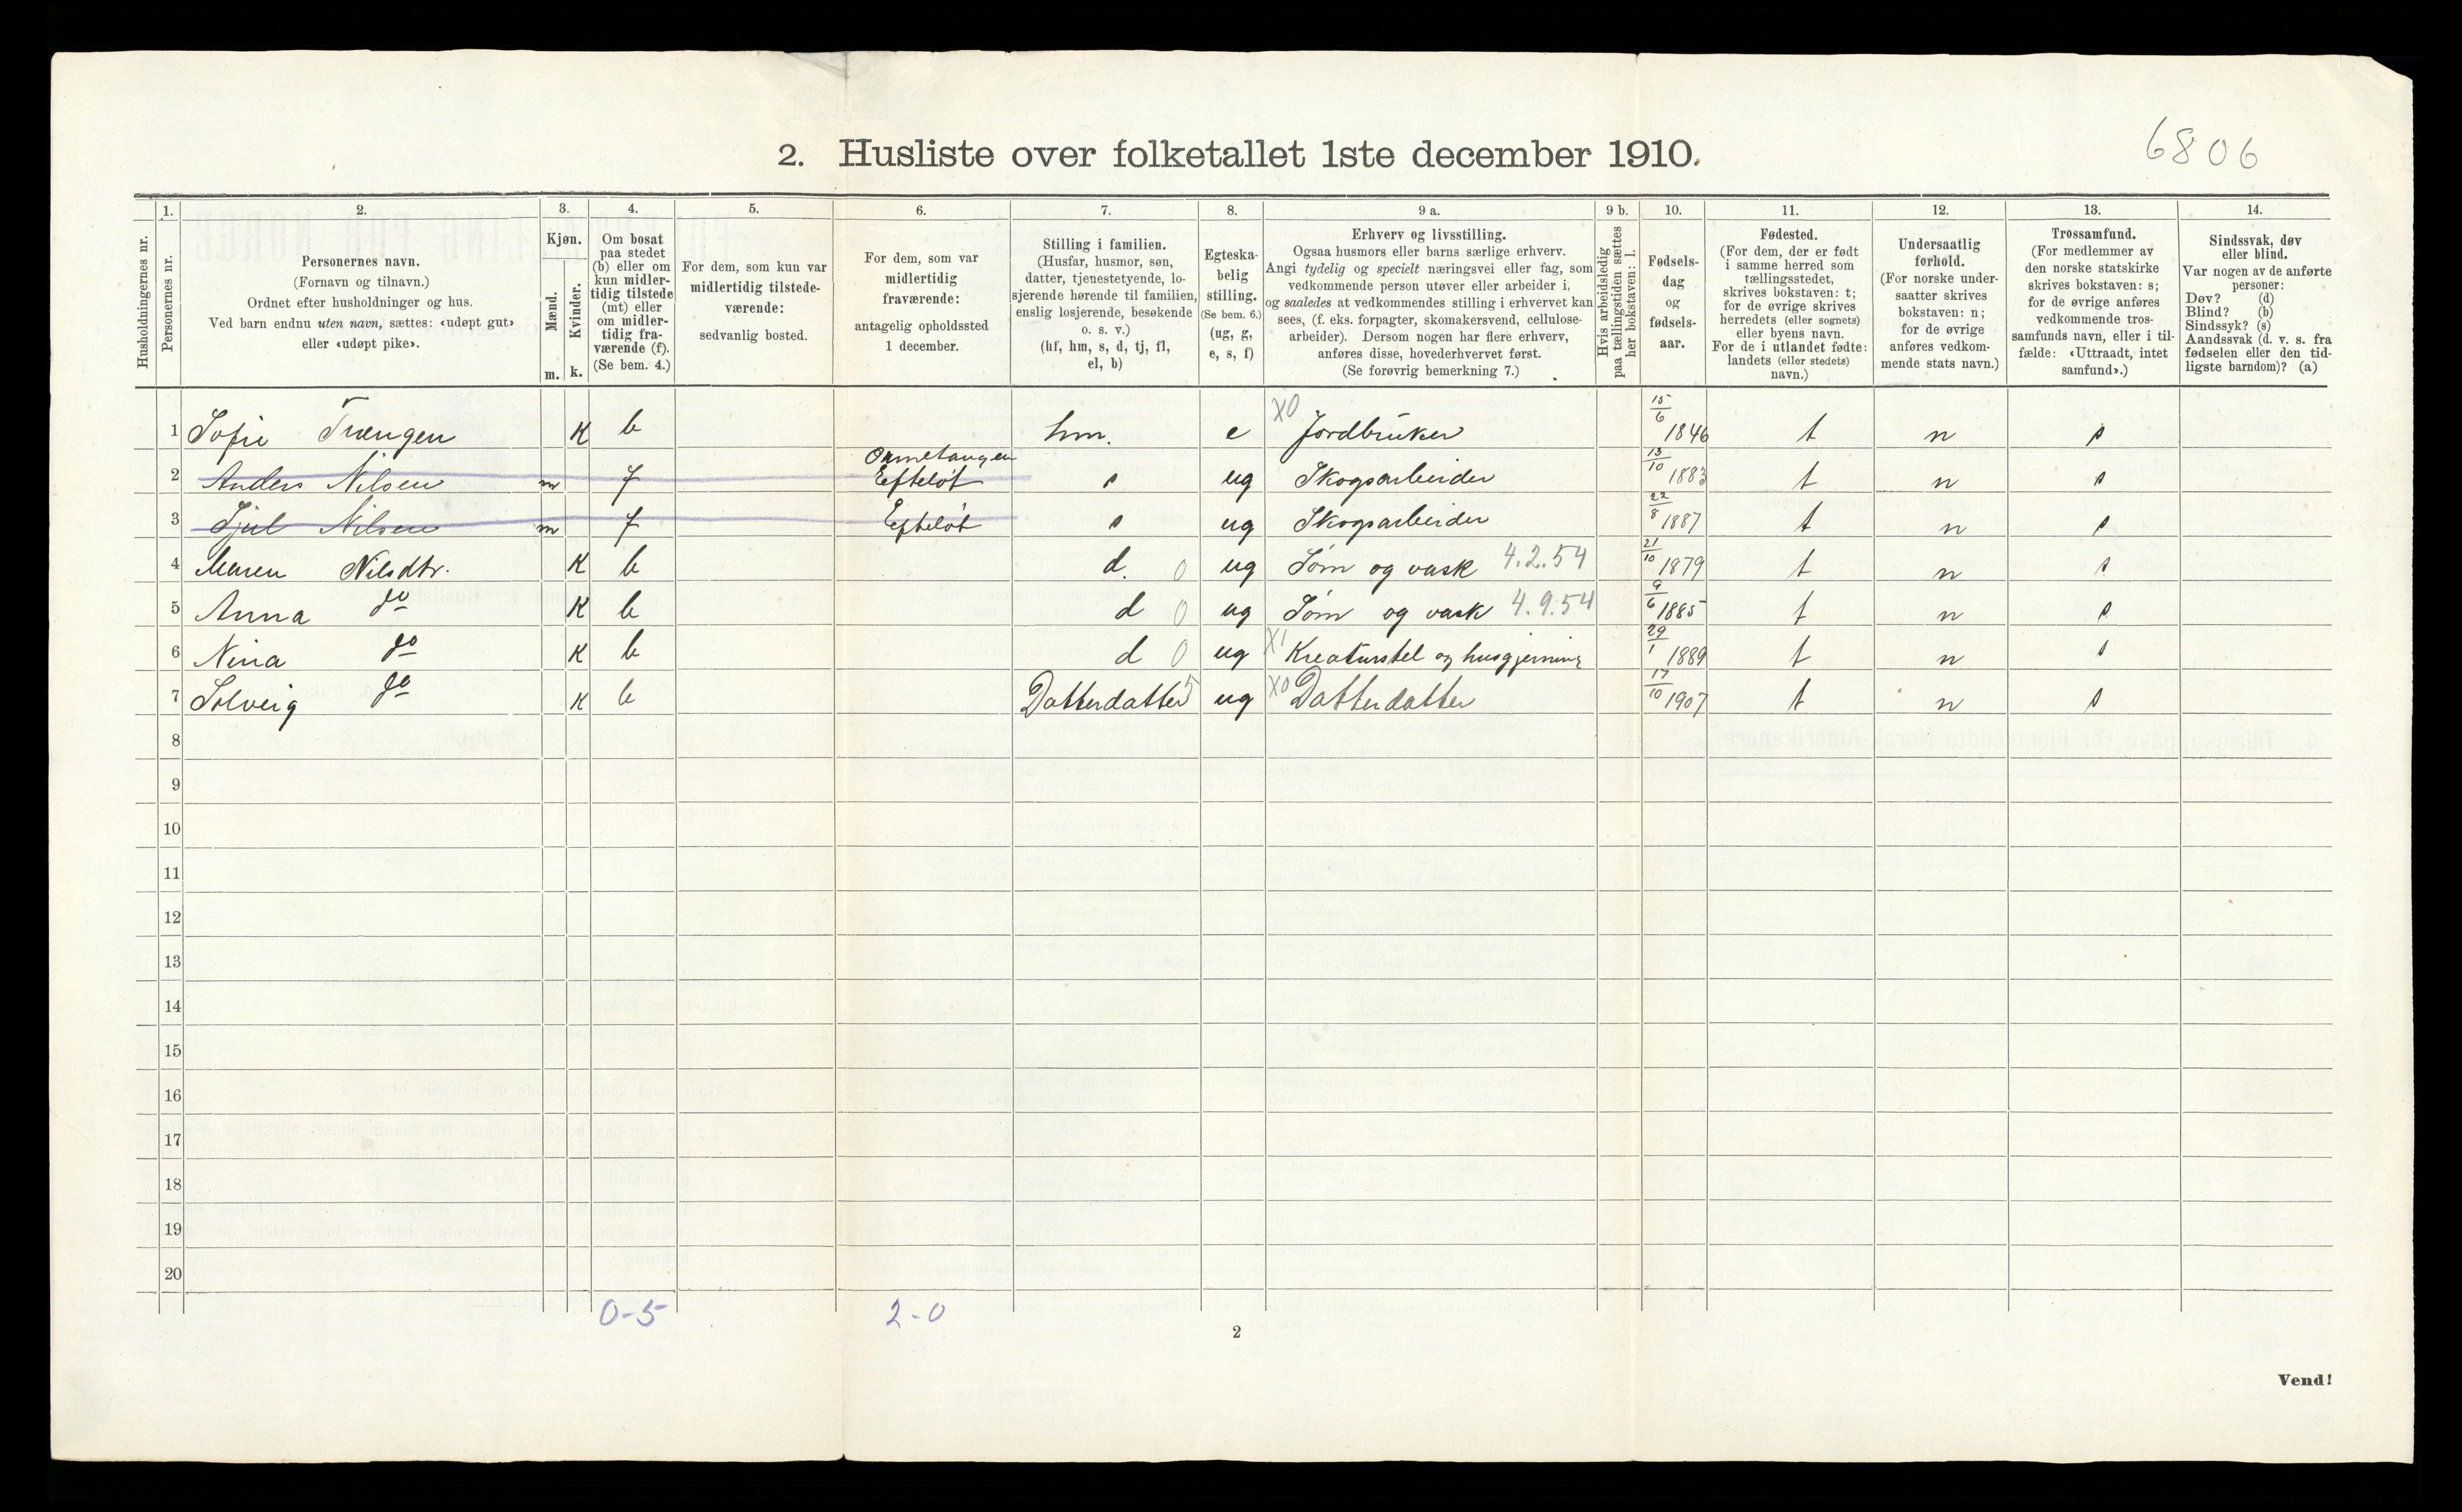 6806
2. Husliste over folketallet 1ste december 1910.
Husholdningernes nr.
1. Personernes nr.
2.
Personernes navn.
(Fornavn og tilnavn.)
Ordnet efter husholdninger og hus.
Ved barn endnu uten navn, sættes: «udøpt gut»
eller «udøpt pike».
3.
Kjøn.
Mænd. Kvinder.
m. k.
4.
Om bosat
paa stedet
(b) eller om
kun midler-
tidig tilstede
(mt) eller
om midler-
tidig fra-
værende (f).
(Se bem. 4.)
5.
For dem, som kun var
midlertidig tilstede-
værende:
sedvanlig bosted.
6.
For dem, som var
midlertidig
fraværende:
antagelig opholdssted
1 december.
7.
Stilling i familien.
(Husfar, husmor, søn,
datter, tjenestetyende, lo-
sjerende hørende til familien,
enslig losjerende, besøkende
o. s. v.)
(hf, hm, s, d, tj, fl,
el, b)
8.
Egteska-
belig
stilling.
(Se bem. 6.)
(ug, g,
e, s, f)
9 a.
Erhverv og livsstilling.
Ogsaa husmors eller barns særlige erhverv.
Angi tydelig og specielt næringsvei eller fag, som
vedkommende person utøver eller arbeider i,
og saaledes at vedkommendes stilling i erhvervet kan
sees, (f. eks. forpagter, skomakersvend, cellulose-
arbeider). Dersom nogen har flere erhverv,
anføres disse, hovederhvervet først.
(Se forøvrig bemerkning 7.)
9 b.
Hvis arbeidsledig
paa tællingstiden sættes
her bokstaven: l.
10.
Fødsels-
dag
og
fødsels-
aar.
11.
Fødested.
(For dem, der er født
i samme herred som
tællingsstedet,
skrives bokstaven: t;
for de øvrige skrives
herredets (eller sognets)
eller byens navn.
For de i utlandet fødte:
landets (eller stedets)
navn.)
12.
Undersaatlig
forhold.
(For norske under-
saatter skrives
bokstaven: n;
for de øvrige
anføres vedkom-
mende stats navn.)
13.
Trossamfund.
(For medlemmer av
den norske statskirke
skrives bokstaven: s;
for de øvrige anføres
vedkommende tros-
samfunds navn, eller i til-
fælde: «Uttraadt, intet
samfund».)
14.
Sindssvak, døv
eller blind.
Var nogen av de anførte
personer:
Døv? (d)
Blind? (b)
Sindssyk? (s)
Aandssvak (d. v. s. fra
fødselen eller den tid-
ligste barndom)? (a)
1 Sofie Trængen K b hm. e X0 Jordbruker 15/6 1846 t n s
2 Anders Nilsen m f Efteløt s ug Skogsarbeider 13/10 1883 t n s
3 Nilsen m f Efteløt s ug Skogsarbeider 22/8 1887 t n s
4 Maren Nilsdtr. K b d. 0 ug Søm og vask 4.2.54 21/10 1879 t n s
5 Anna do K b d 0 ug Søm og vask 4.9.54 9/6 1885 t n s
6 Nina do K b d 0 ug X1 Kreaturstel og husgjerning 29/1 1889 t n s
7 Solveig do K b Datterdatter 5 ug X0 Datterdatter 17/10 1907 t n s
8
9
10
11
12
13
14
15
16
17
18
19
20
0-5 2-0
2
Vend!